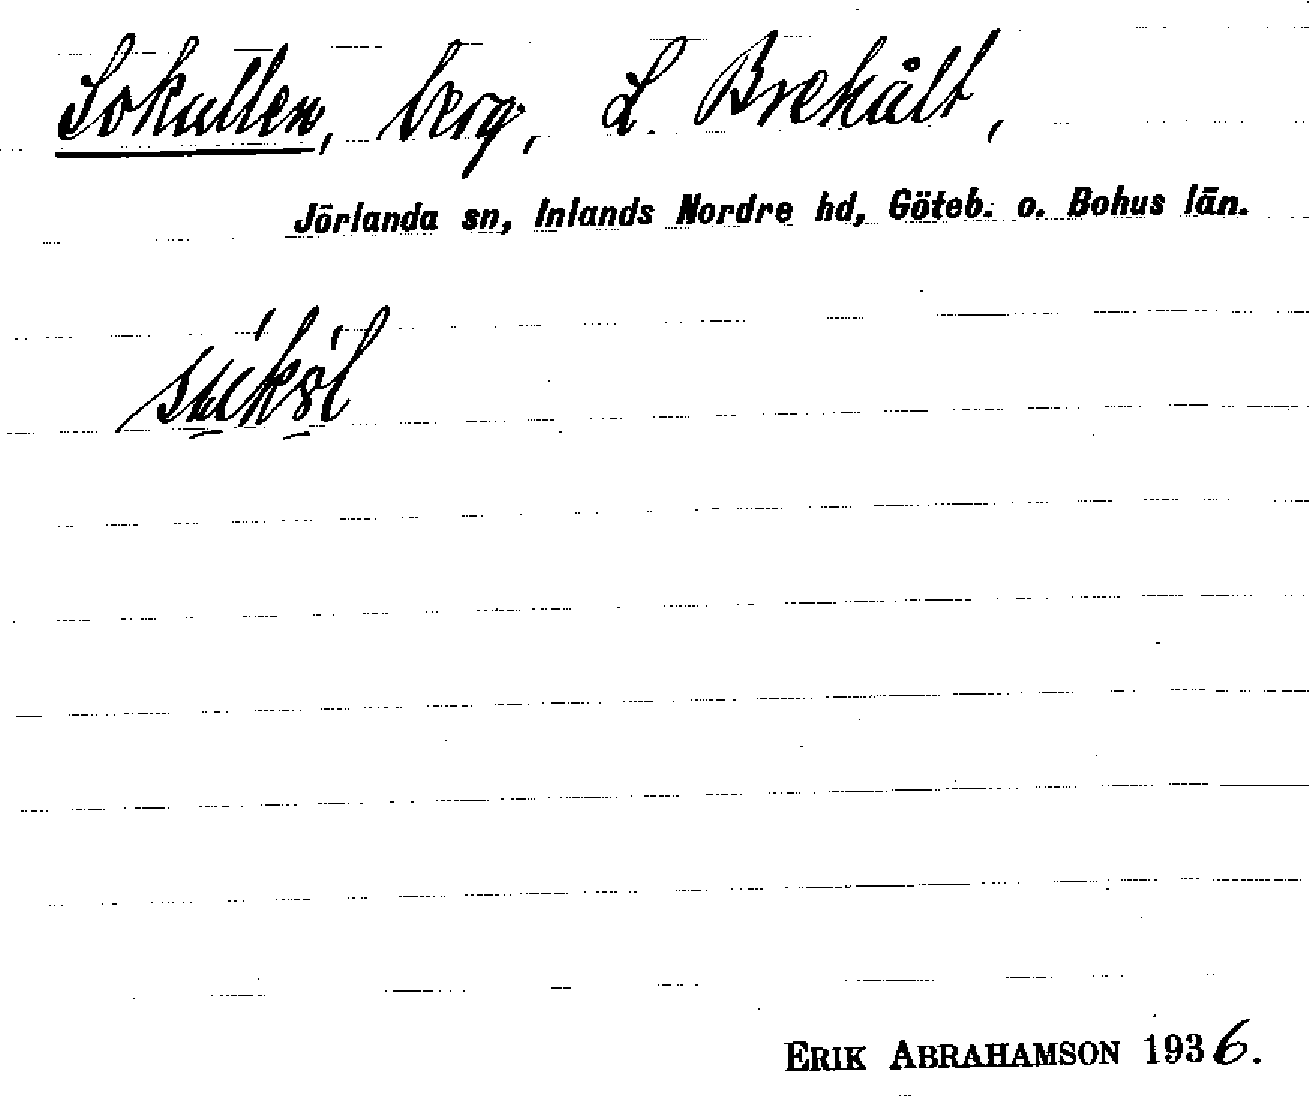 Sokullen, berg, L. Brekält,
Jörlanda sn, Inlands Nordre hd, Göteb. o. Bohus län.
ERIK ABRAHAMSON 1936.